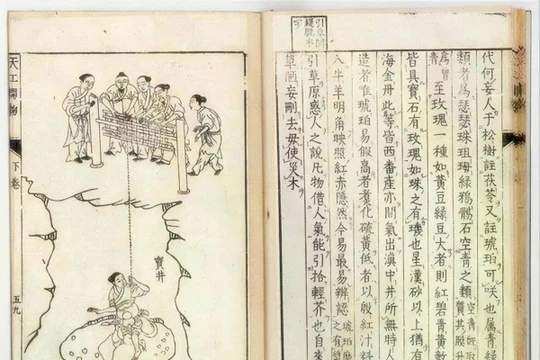 代何妄人于松樹註茯苓又註琥珀可咲也属青緑
類者爲瑟瑟珠珇母緑鴉鶻石空青之類空青既取質其膜
爲曾青至玫瑰一種如黄豆緑豆大者則紅碧青黄數
皆具寶石有玫瑰如珠之有璣也星漢砂以上猶有
海金丹此等皆西番產亦間氣出滇中井所無時人
造者唯琥珀易假高者煑化硫黄低者以殷紅汁料
入牛羊明角映照紅赤隱然今易最易辨認琥珀磨之有漿
引草原惑人之說凡物借人氣能引拾輕芥也自來
草陋妄刪去毋使災木
寶井
天工開物
下卷
五九